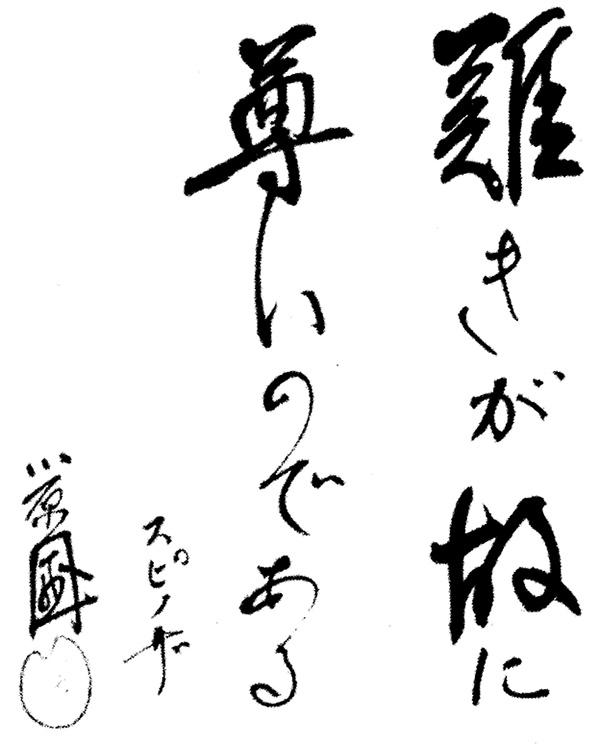 難きが故に
尊いのである
スピノザ